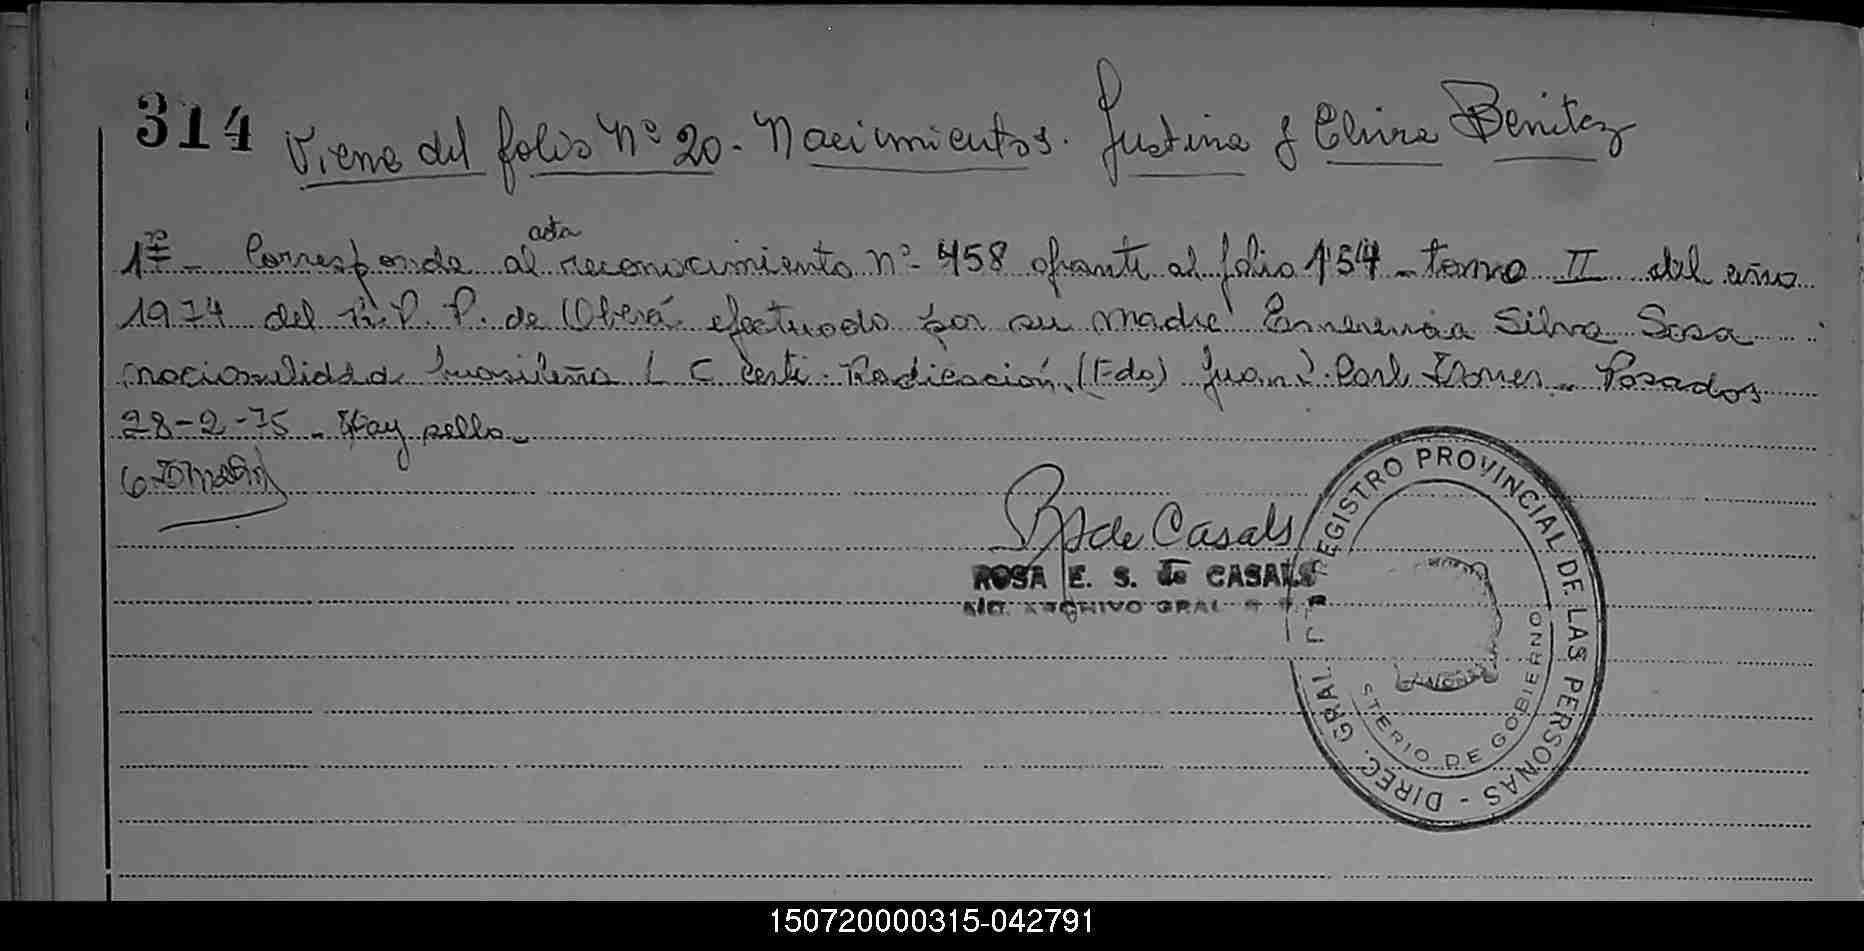 314 Viene del folio Nº 20 - Nacimientos. Justina y Elvira Benitez
acta
1º - Corresponde al reconocimiento nº 458 obrante al folio 154 - tomo II del año
1974 del R. P. P. de Oberá efectuado por su madre Silva Sosa
nacionalidad brasileña L C Certi. Radicación. (Fdo) Juan Carl - Posadas
28-2-75 - Hay sello -
de Casals
ROSA E. S. de CASALS
ARCHIVO GRAL
DIREC. GRAL. REGISTRO PROVINCIAL DE LAS PERSONAS -
STERIO DE GOBIERNO
150720000315-042791